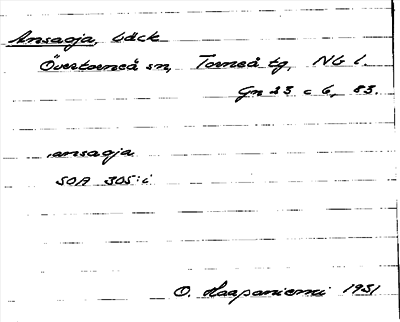 Ansaoja, bäck
Övertorneå sn, Torneå tg, NG l.
Gn 23 c 6, 83.
ansaoja
SOA 305:i
O. Haapaniemi 1931